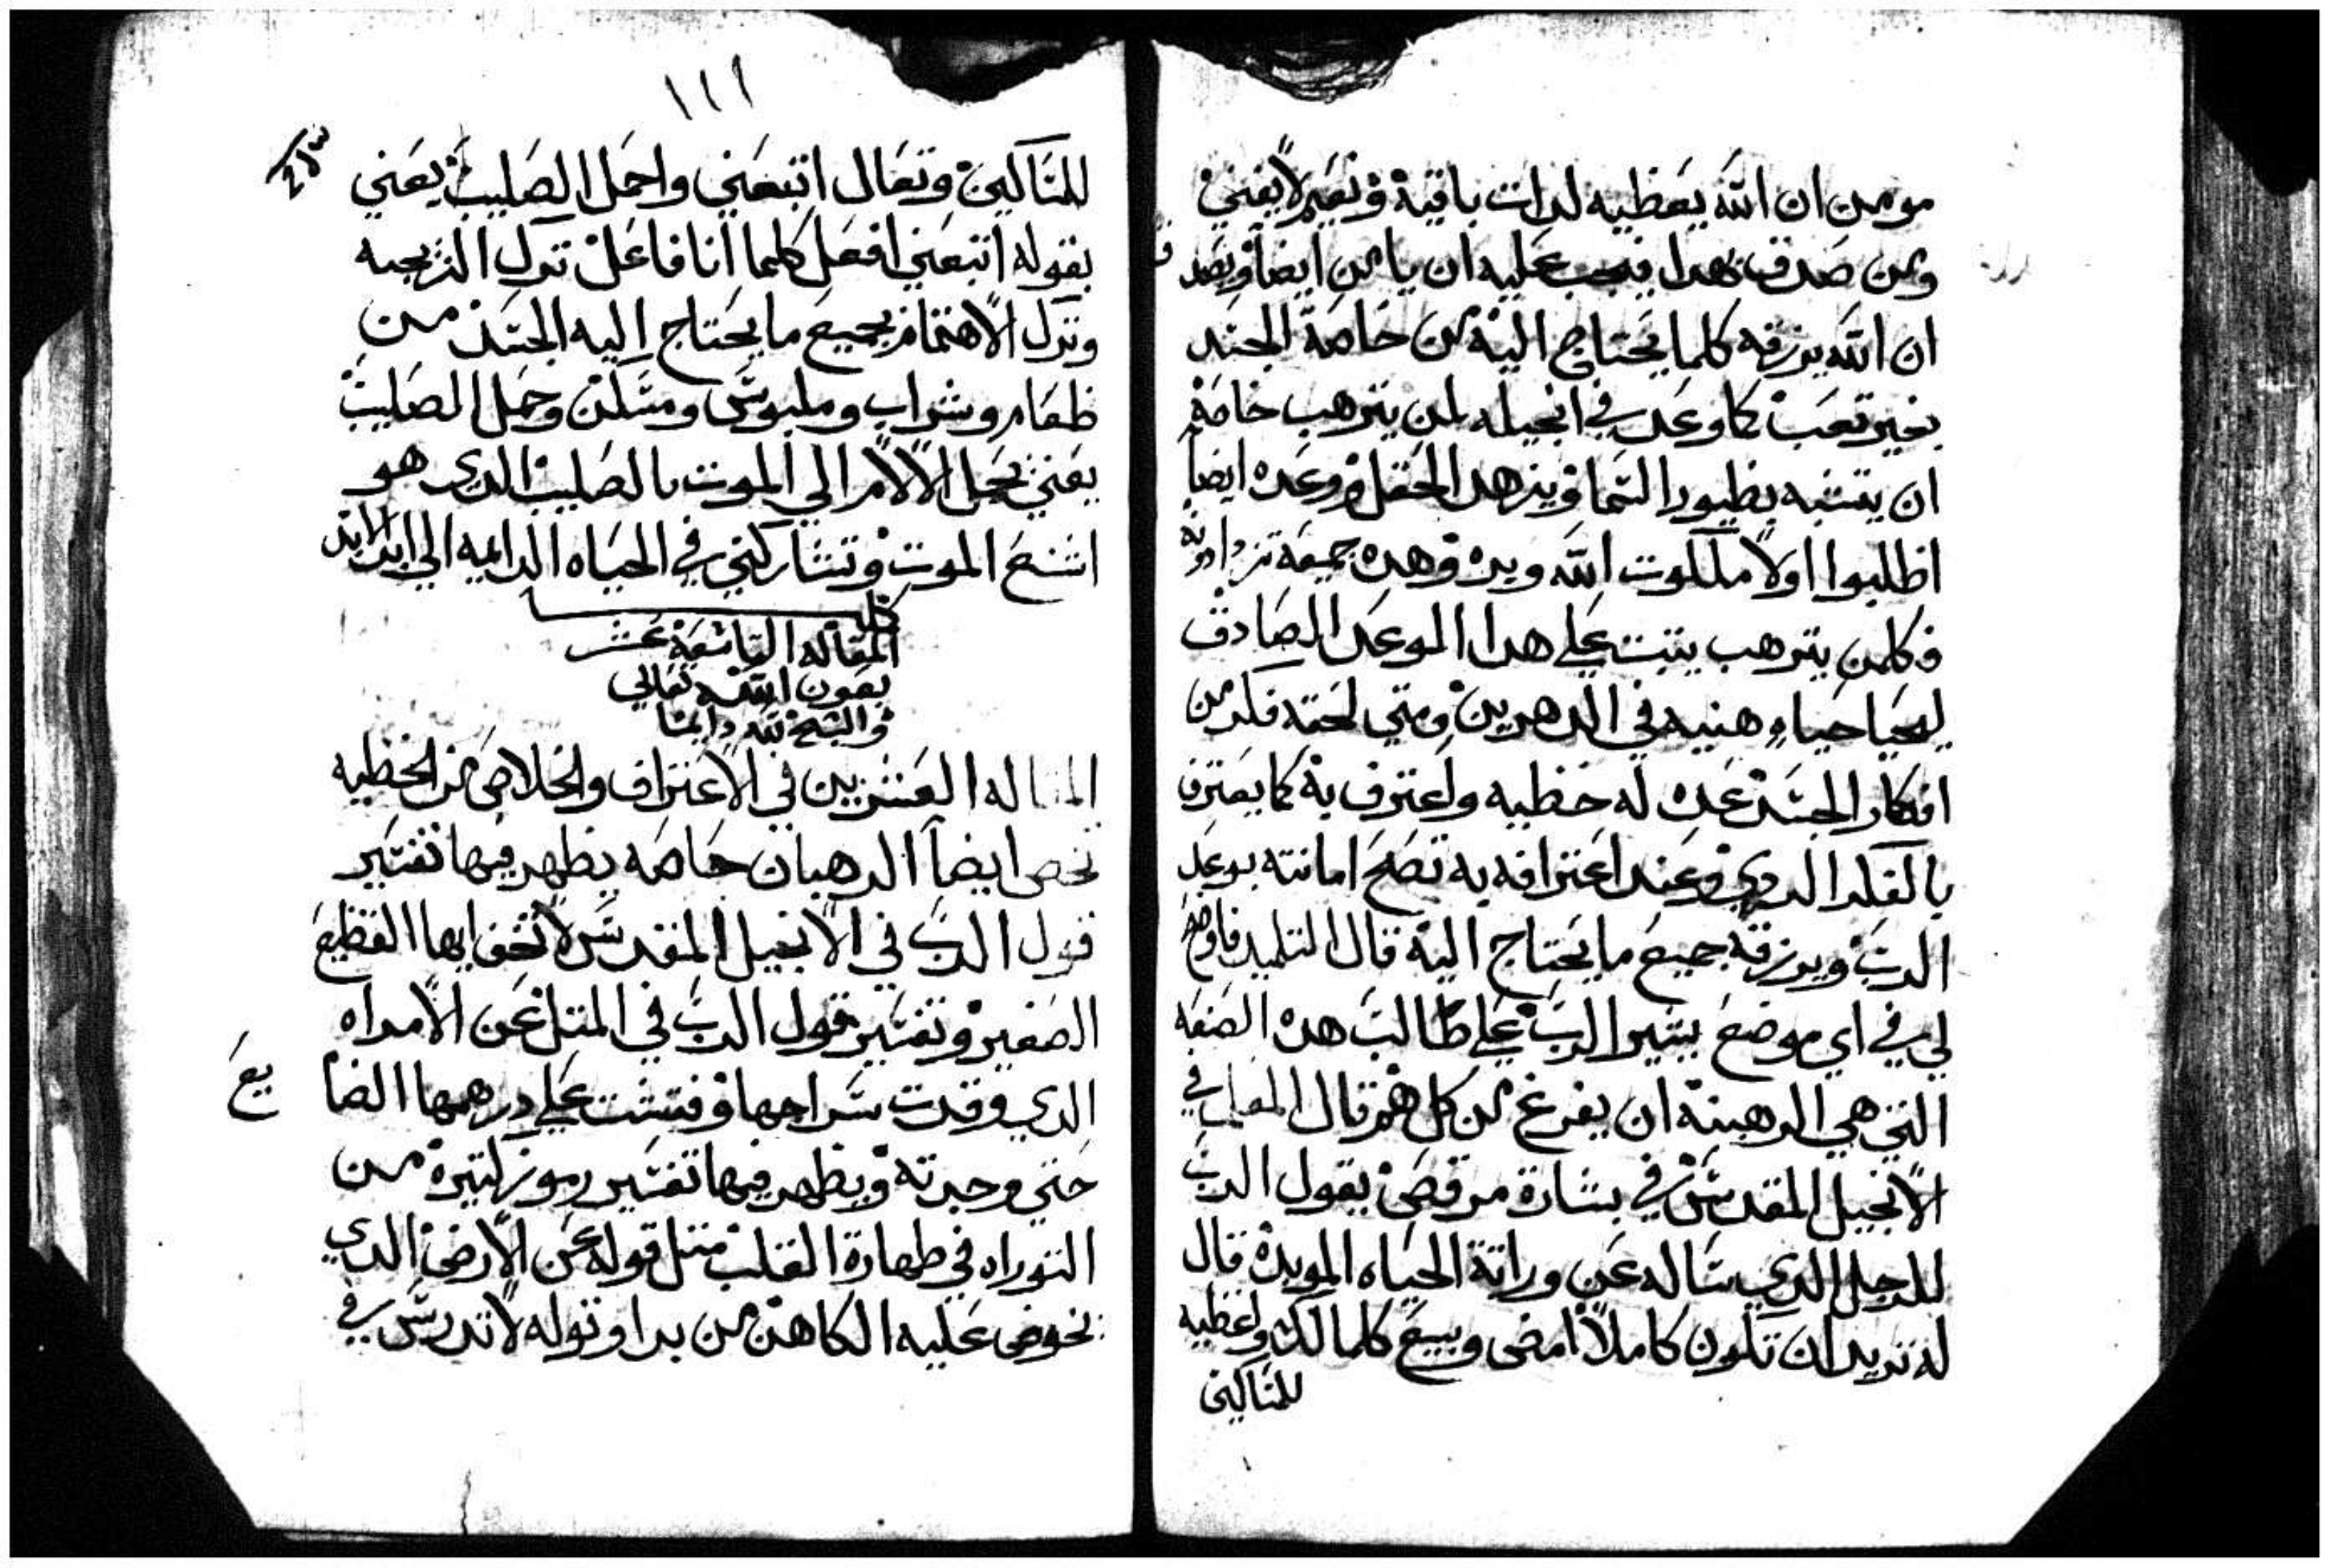 مومن ان الله يعطيه لدات باقية ونعيم لا يفني
ومن صدق بهدا فيجب عليه ان يامن ايضا ويصدق
ان الله يرزقه كلما يحتاج اليه من خاصة الجسد
بغير تعب كما وعد في انجيله لمن يترهب خاصة
ان يتشبه بطيور السما وبزهر الحقل ووعده ايضا
اطلبوا اولا ملكوت الله وبره وهده جميعه تزدادونه
فكلمن يترهب يتبت علي هدا الموعد الصادق
ليحيا حياه هنيه في الدهرين ومتي لحقه فكر من
افكار الجسد عده له خطيه واعترف به كما يعترف
بالفكر الردي وعند اعترافه به تصح امانته بوعد
الرب ويرزقه جميع ما يحتاج اليه قال التلميد فاوضح
لي في اي موضع يشير الرب علي طالب هده الصفه
التي هي الرهبنه ان يفرغ من كل هم قال المعلم في
الانجيل المقدس في بشارة مرقص يقول الرب
للرجل الدي ساله عن وراتة الحياه الموبدة قال
له تريد ان تكون كاملا امضي وبيع كلما لك واعطيه
للمساكين
١١١
للمساكين وتعال اتبعني واحمل الصليب يعني
بقوله اتبعني افعل كلما انا فاعل ترك الزيجه
وترك الاهتمام بجميع ما يحتاج اليه الجسد من
طعام وشراب وملبوس ومسكن وحمل الصليب
يعني تحمل الالام الي الموت بالصليب الدي هو
اشنع الموت وتشاركني في الحياه الدايمه الي ابد الابد
كملت
المقاله التاسعة عشر
بعون الله تعالي
والسبح لله دايما
المقاله العشرين في الاعتراف والخلاص من الخطيه
تخص ايضا الرهبان خاصه يظهر فيها تفسير
قول الرب في الانجيل المقدس لا تخف ايها القطيع
الصغير وتفسير قول الرب في المتل عن الامراه
الدي وقدت سراجها وفتشت علي درهمها الضايع
حتي وجدته ويظهر فيها تفسير رموز كتيرة من
التوراه في طهارة القلب متل قوله عن الارض الدي
نخوض عليه الكاهن من بدا وقوله لا تدرس في